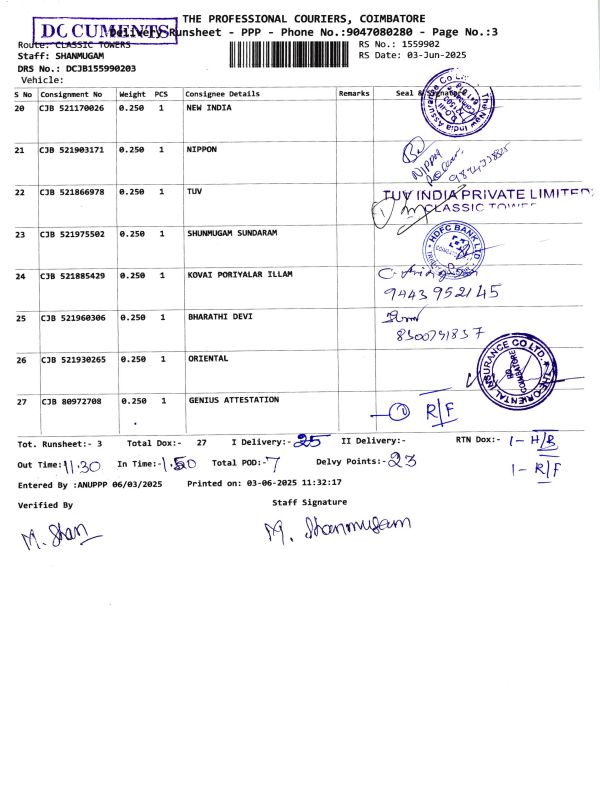 THE PROFESSIONAL COURIERS, COIMBATORE
DOCUMENTS
Delivery Runsheet - PPP - Phone No.:9047080280 - Page No.:3
Route: CLASSIC TOWERS
RS No.: 1559902
Staff: SHANMUGAM
RS Date: 03-Jun-2025
DRS No.: DCJB155990203
Vehicle:
S No Consignment No Weight PCS Consignee Details Remarks Seal & Signature
20 CJB 521170026 0.250 1 NEW INDIA
The New India Assurance Co Ltd
21 CJB 521903171 0.250 1 NIPPON
Nippon
22 CJB 521866978 0.250 1 TUV
TUV INDIA PRIVATE LIMITED
CLASSIC TOWER
23 CJB 521975502 0.250 1 SHUNMUGAM SUNDARAM
HDFC BANK LTD
24 CJB 521885429 0.250 1 KOVAI PORIYALAR ILLAM
9443952145
25 CJB 521960306 0.250 1 BHARATHI DEVI
8300791837
26 CJB 521930265 0.250 1 ORIENTAL
THE ORIENTAL INSURANCE CO LTD.
COIMBATORE
27 CJB 80972708 0.250 1 GENIUS ATTESTATION
① R/F
Tot. Runsheet:- 3 Total Dox:- 27 I Delivery:- 25 II Delivery:- RTN Dox:- 1- H/B
Out Time:- 11.30 In Time:- 1.50 Total POD:- 7 Delvy Points:- 23
1- R/F
Entered By :ANUPPP 06/03/2025 Printed on: 03-06-2025 11:32:17
Verified By
Staff Signature
M. Shan
M. Shanmugam